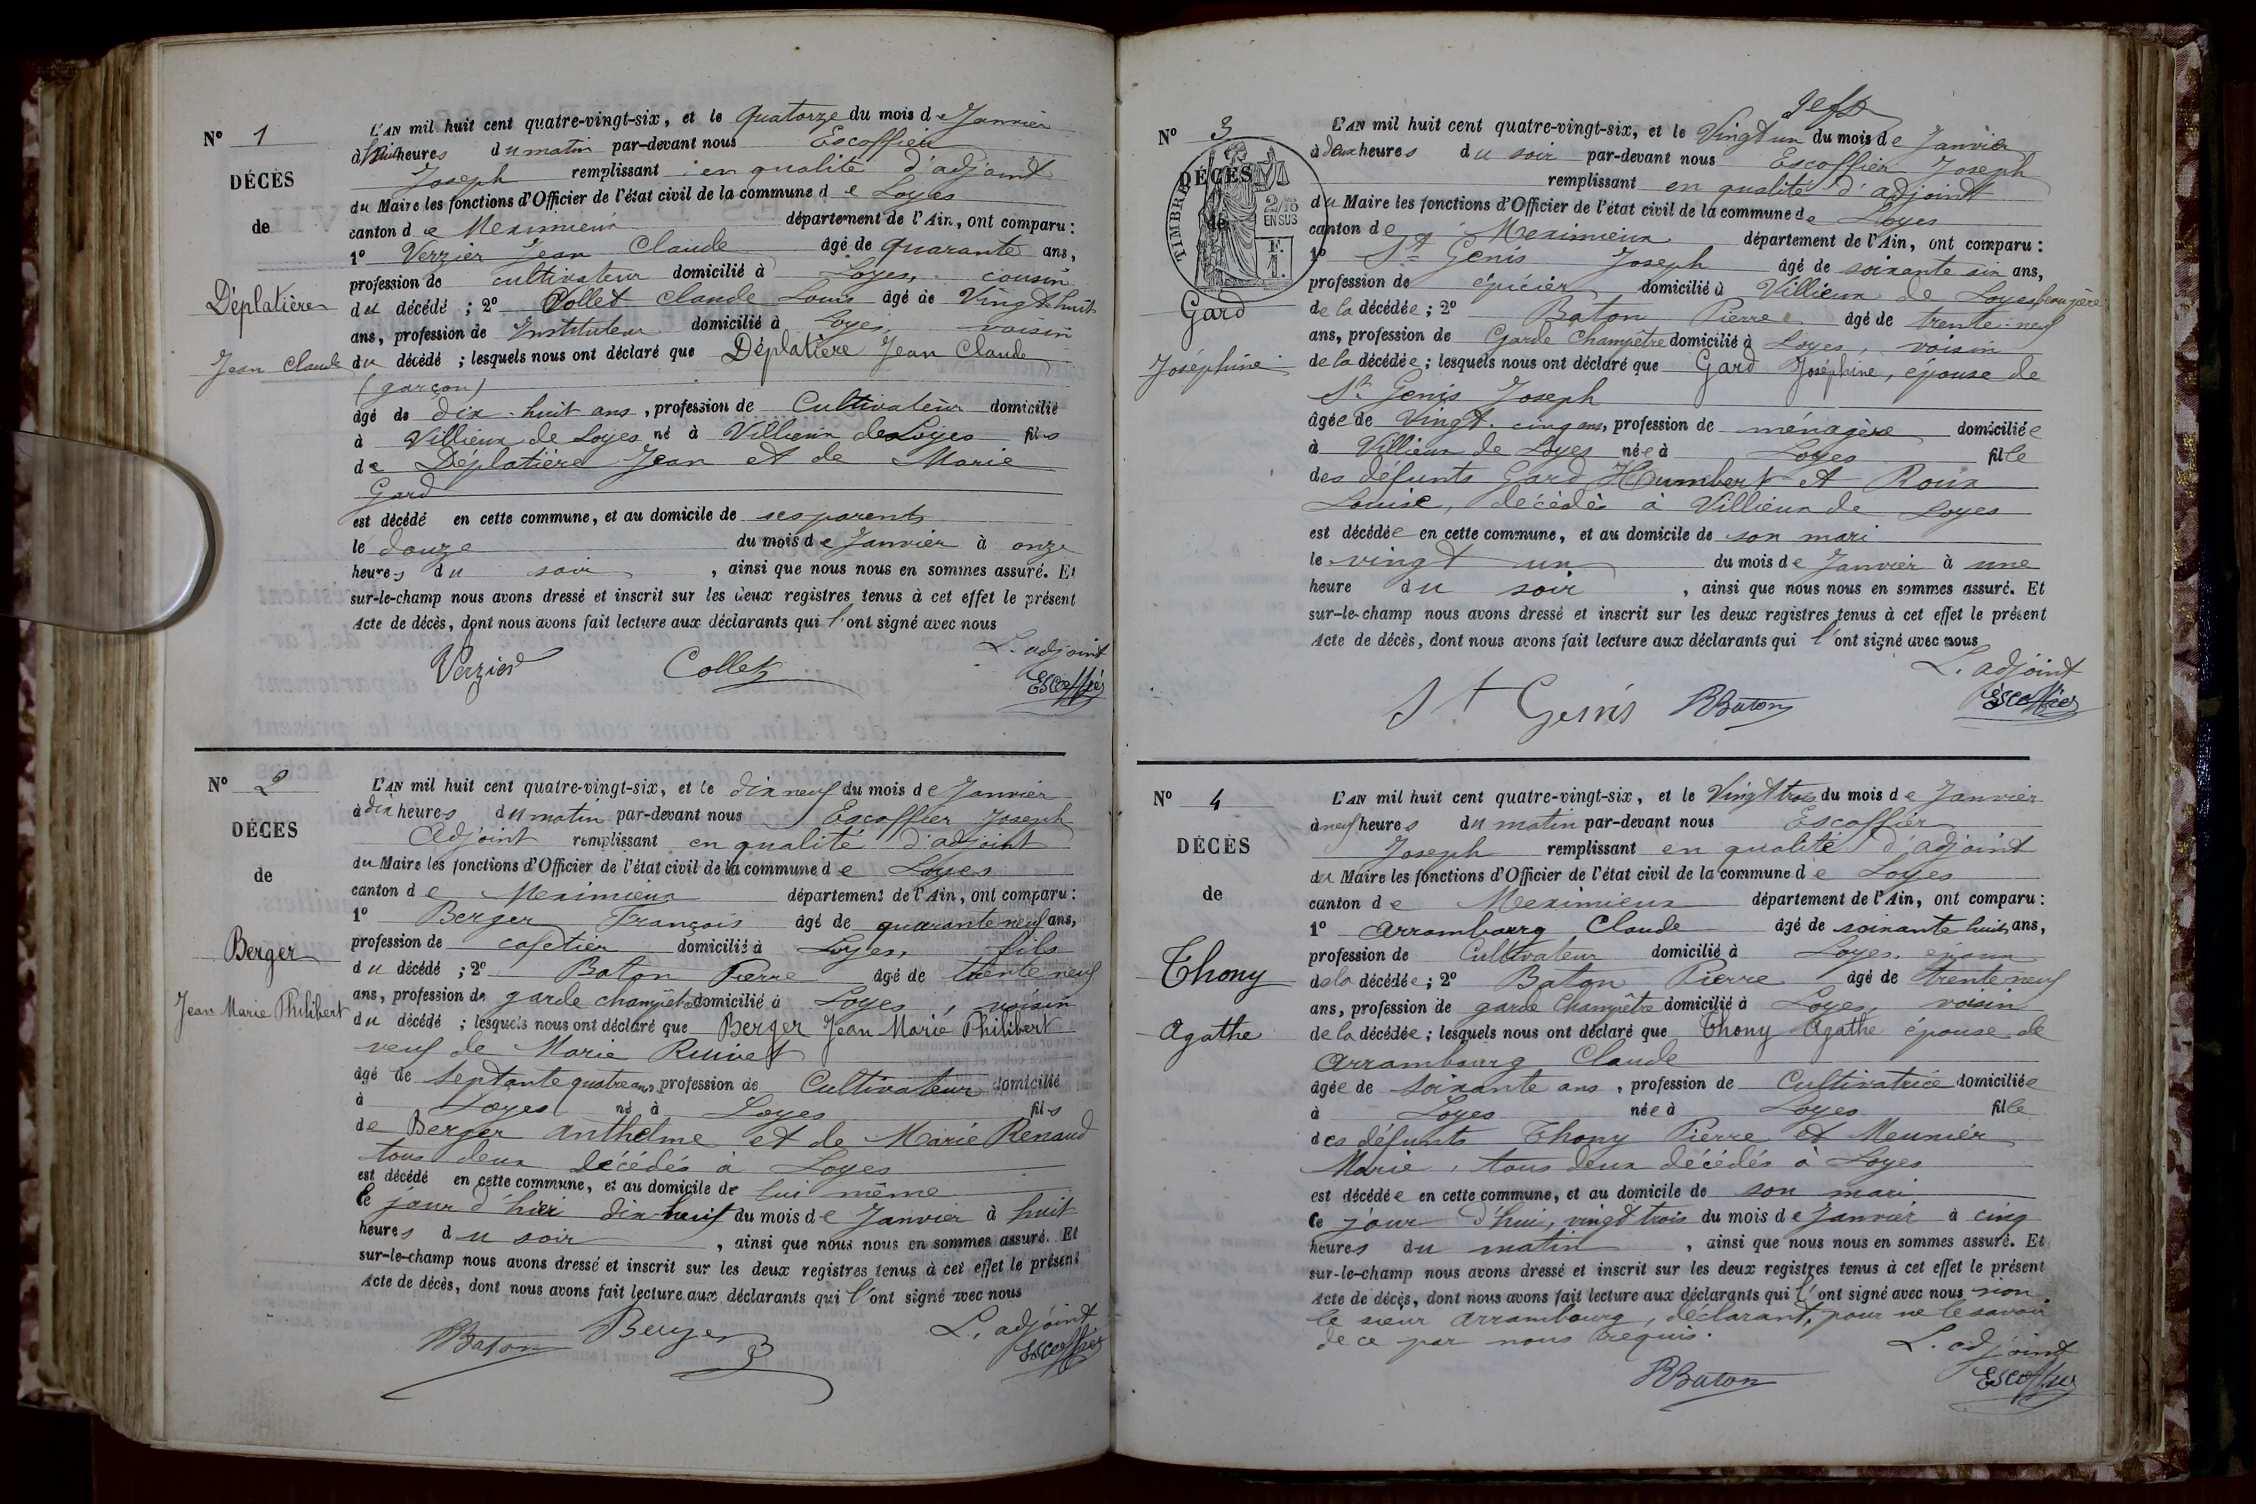 N° 1
DÉCÈS
de
Déplatière
Jean Claude
L'AN mil huit cent quatre-vingt-six, et le quatorze du mois de Janvier
à huit heures du matin par-devant nous Escoffier
Joseph remplissant en qualité d'adjoint
du Maire les fonctions d'Officier de l'état civil de la commune de Loyes
canton de Meximieux département de l'Ain, ont comparu :
1° Verzier Jean Claude âgé de quarante ans,
profession de cultivateur domicilié à Loyes, cousin
du décédé ; 2° Collet Claude Louis âgé de Vingt huit
ans, profession de Instituteur domicilié à Loyes, voisin
du décédé ; lesquels nous ont déclaré que Déplatière Jean Claude
(garçon)
âgé de dix-huit ans, profession de Cultivateur domicilié
à Villieux de Loyes né à Villieux de Loyes fils
de Déplatière Jean et de Marie
Gard
est décédé en cette commune, et au domicile de ses parents
le douze du mois de Janvier à onze
heures du soir, ainsi que nous nous en sommes assuré. Et
sur-le-champ nous avons dressé et inscrit sur les deux registres tenus à cet effet le présent
Acte de décès, dont nous avons fait lecture aux déclarants qui l'ont signé avec nous
L. adjoint
Verzier Collet Escoffier
N° 2
DÉCÈS
de
Berger
Jean Marie Philibert
L'AN mil huit cent quatre-vingt-six, et le dix neuf du mois de Janvier
à dix heures du matin par-devant nous Escoffier Joseph
Adjoint remplissant en qualité d'adjoint
du Maire les fonctions d'Officier de l'état civil de la commune de Loyes
canton de Meximieux département de l'Ain, ont comparu :
1° Berger François âgé de quarante neuf ans,
profession de cafetier domicilié à Loyes, fils
du décédé ; 2° Baton Pierre âgé de trente neuf
ans, profession de garde champêtre domicilié à Loyes, voisin
du décédé ; lesquels nous ont déclaré que Berger Jean Marie Philibert
veuf de Marie
âgé de septante quatre ans, profession de Cultivateur domicilié
à Loyes né à Loyes fils
de Berger anthelme et de Marie Renaud
tous deux décédés à Loyes
est décédé en cette commune, et au domicile de lui même
le jour d'hier dix-huit du mois de Janvier à huit
heures du soir, ainsi que nous nous en sommes assuré. Et
sur-le-champ nous avons dressé et inscrit sur les deux registres tenus à cet effet le présent
Acte de décès, dont nous avons fait lecture aux déclarants qui l'ont signé avec nous
L. adjoint
PBaton Berger Escoffier
N° 3
TIMBRE
2/10 EN SUS
DÉCÈS
de
Gard
Joséphine
L'AN mil huit cent quatre-vingt-six, et le Vingt un du mois de Janvier
à deux heures du soir par-devant nous Escoffier Joseph
remplissant en qualité d'adjoint
du Maire les fonctions d'Officier de l'état civil de la commune de Loyes
canton de Meximieux département de l'Ain, ont comparu :
1° St Genis Joseph âgé de soixante six ans,
profession de épicier domicilié à Villieux de Loyes beau père
de la décédée ; 2° Baton Pierre âgé de trente-neuf
ans, profession de Garde Champêtre domicilié à Loyes, voisin
de la décédée ; lesquels nous ont déclaré que Gard Joséphine, épouse de
St Genis Joseph
âgée de Vingt-cinq ans, profession de ménagère domiciliée
à Villieux de Loyes née à Loyes fille
des défunts Gard Humbert et Roux
Louise, décédés à Villieux de Loyes
est décédée en cette commune, et au domicile de son mari
le vingt un du mois de Janvier à une
heure du soir, ainsi que nous nous en sommes assuré. Et
sur-le-champ nous avons dressé et inscrit sur les deux registres tenus à cet effet le présent
Acte de décès, dont nous avons fait lecture aux déclarants qui l'ont signé avec nous
L. adjoint
St Genis PBaton Escoffier
N° 4
DÉCÈS
de
Thony
Agathe
L'AN mil huit cent quatre-vingt-six, et le Vingt trois du mois de Janvier
à neuf heures du matin par-devant nous Escoffier
Joseph remplissant en qualité d'adjoint
du Maire les fonctions d'Officier de l'état civil de la commune de Loyes
canton de Meximieux département de l'Ain, ont comparu :
1° Arrambourg Claude âgé de soixante huit ans,
profession de Cultivateur domicilié à Loyes, époux
de la décédée ; 2° Baton Pierre âgé de trente neuf
ans, profession de garde Champêtre domicilié à Loyes, voisin
de la décédée ; lesquels nous ont déclaré que Thony Agathe épouse de
Arrambourg Claude
âgée de soixante ans, profession de Cultivatrice domiciliée
à Loyes née à Loyes fille
des défunts Thony Pierre et Meunier
Marie, tous deux décédés à Loyes
est décédée en cette commune, et au domicile de son mari
Ce jour d'hui, vingt trois du mois de Janvier à cinq
heures du matin, ainsi que nous nous en sommes assuré. Et
sur-le-champ nous avons dressé et inscrit sur les deux registres tenus à cet effet le présent
Acte de décès, dont nous avons fait lecture aux déclarants qui l'ont signé avec nous non
le sieur Arrambourg, déclarant, pour ne le savoir
de ce par nous requis.
L. adjoint
PBaton Escoffier